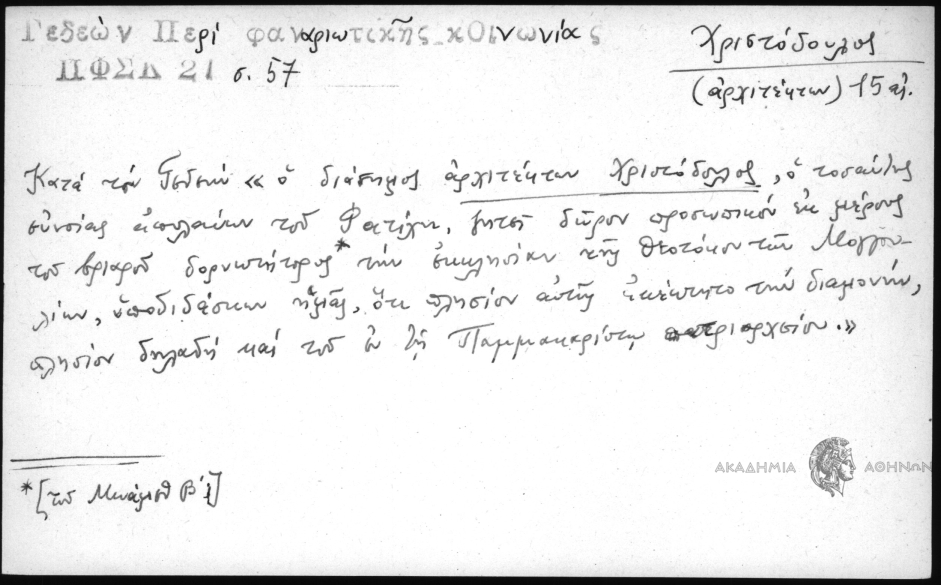 Γεδεὼν Περί φαναριωτικῆς κοινωνίας
ΠΦΣΔ 21 σ. 57
Χριστόδουλος
(ἀρχιτέκτων) 15 αἰ.
Κατά τόν Γεδεών « ὁ διάσημος ἀρχιτέκτων Χριστόδουλος, ὁ τοσαύτης
εὐνοίας ἀπολαύων τοῦ Φατίχη, ζητεῖ δῶρον προσωπικόν ἐκ μέρους
τοῦ βριαροῦ δορυκτήτορος* τήν ἐκκλησίαν τῆς Θεοτόκου τῶν Μογγου-
λίων, ὑποδιδάσκων ἡμᾶς, ὅτι πλησίον αὐτῆς ἐκέκτητο τήν διαμονήν,
πλησίον δηλαδή καί τοῦ ἐν τῇ Παμμακαρίστῳ πατριαρχείου.»
*[τοῦ Μωάμεθ Β΄]
ΑΚΑΔΗΜΙΑ ΑΘΗΝΩΝ